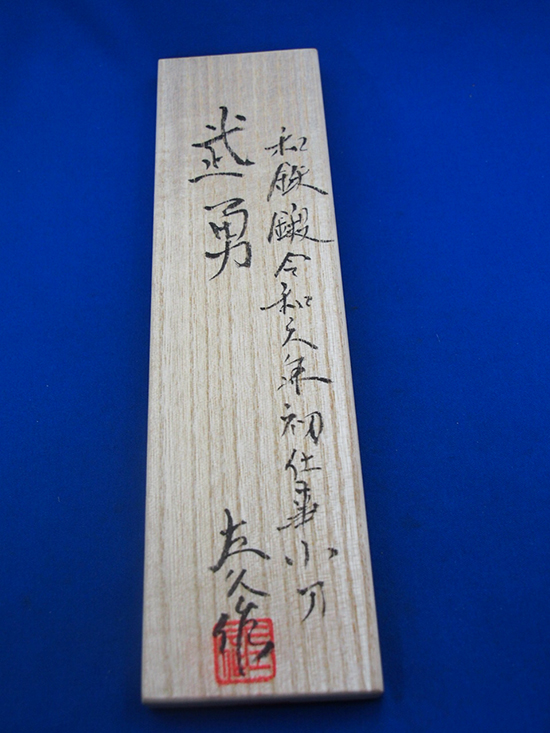 和鉄鍛令和元年初仕事小刀
武勇
左久作